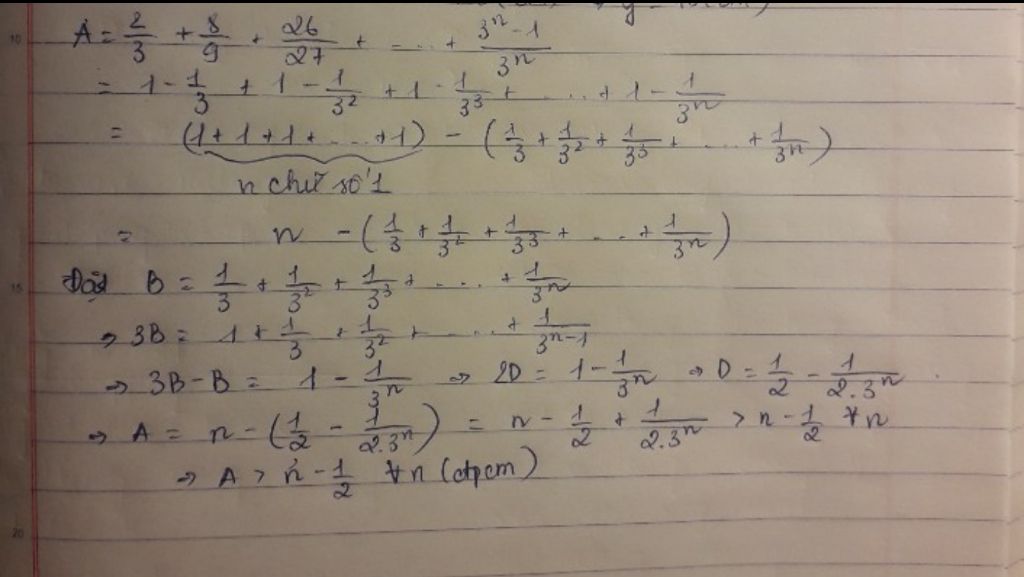 A = 2/3 + 8/9 + 26/27 + .... + (3^n - 1)/3^n
= 1 - 1/3 + 1 - 1/3^2 + 1 - 1/3^3 + .... + 1 - 1/3^n
= (1 + 1 + 1 + .... + 1) - (1/3 + 1/3^2 + 1/3^3 + .... + 1/3^n)
n chữ số 1
= n - (1/3 + 1/3^2 + 1/3^3 + .... + 1/3^n)
Đặt B = 1/3 + 1/3^2 + 1/3^3 + .... + 1/3^n
⇒ 3B = 1 + 1/3 + 1/3^2 + .... + 1/3^(n-1)
⇒ 3B - B = 1 - 1/3^n ⇒ 2D = 1 - 1/3^n ⇒ D = 1/2 - 1/(2.3^n) .
⇒ A = n - (1/2 - 1/(2.3^n)) = n - 1/2 + 1/(2.3^n) > n - 1/2 ∀n
⇒ A > n - 1/2 ∀n (đpcm)